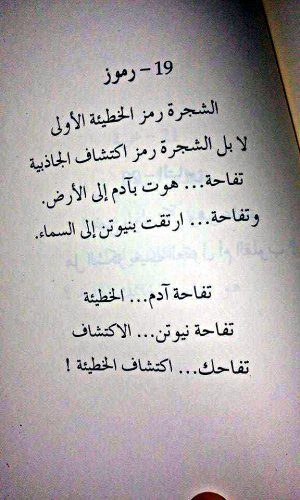 19 – رموز
الشجرة رمز الخطيئة الأولى
لا بل الشجرة رمز اكتشاف الجاذبية
تفاحة... هوت بآدم إلى الأرض.
وتفاحة... ارتقت بنيوتن إلى السماء.
تفاحة آدم... الخطيئة
تفاحة نيوتن... الاكتشاف
تفاحك... اكتشاف الخطيئة !